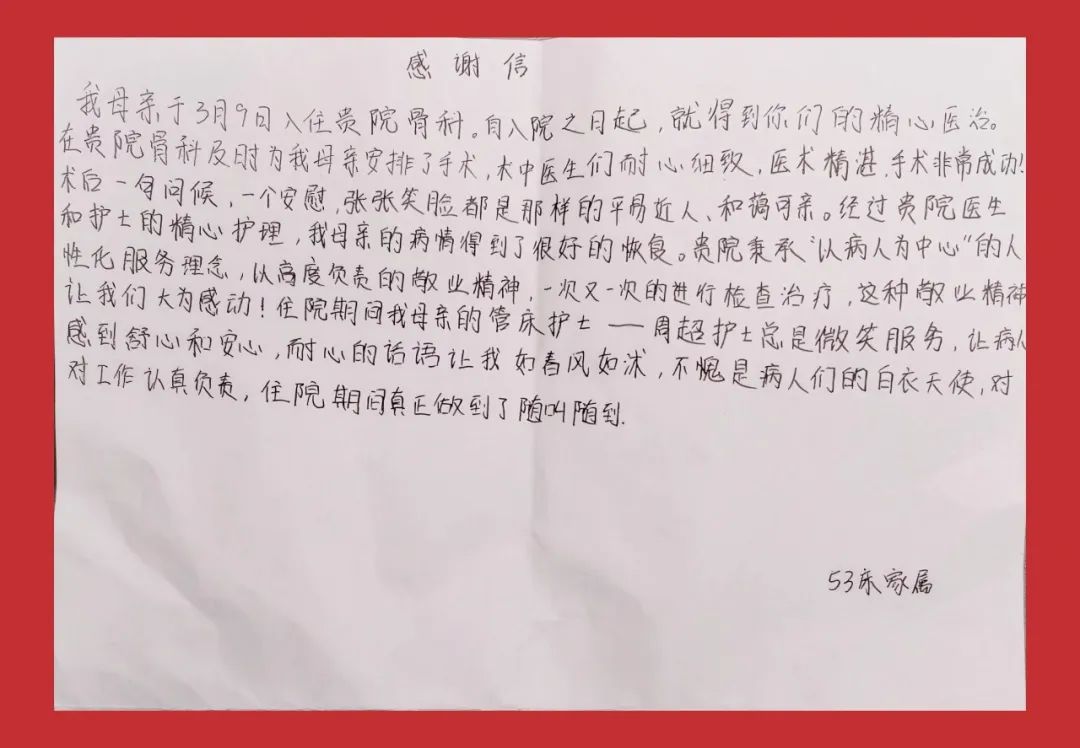 感谢信
我母亲于3月9日入住贵院骨科。自入院之日起，就得到你们的精心医治。
在贵院骨科及时为我母亲安排了手术，术中医生们耐心细致，医术精湛，手术非常成功！
术后一句问候，一个安慰，张张笑脸都是那样的平易近人、和蔼可亲。经过贵院医生
和护士的精心护理，我母亲的病情得到了很好的恢复。贵院秉承“以病人为中心”的人
性化服务理念，以高度负责的敬业精神，一次又一次的进行检查治疗，这种敬业精神
让我们大为感动！住院期间我母亲的管床护士——周超护士总是微笑服务，让病人
感到舒心和安心，耐心的话语让我如春风如沐，不愧是病人们的白衣天使，对
对工作认真负责，住院期间真正做到了随叫随到.
53床家属